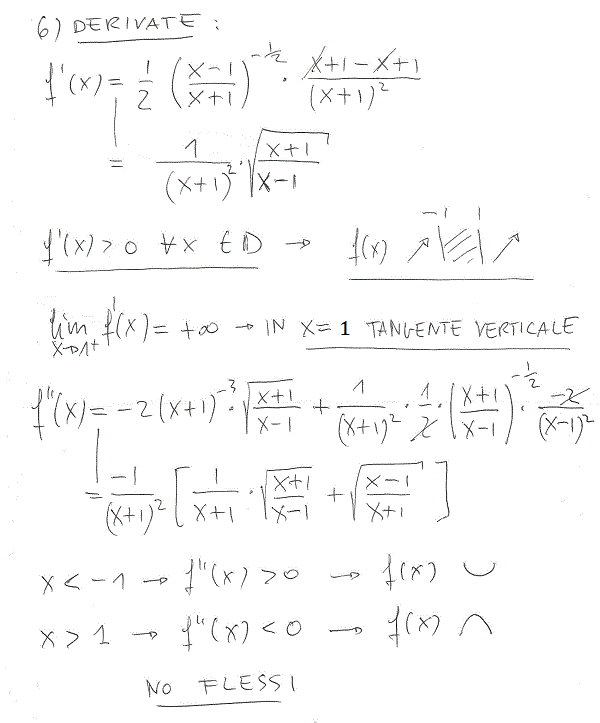 6) DERIVATE :
f'(x) = 1/2 ((x-1)/(x+1))^(-1/2) · (x+1-x+1)/(x+1)²
= 1/(x+1)² · √((x+1)/(x-1))
f'(x) > 0 ∀x ∈ D → f(x) ↗ -1 1 ↗
lim x→1⁺ f'(x) = +∞ → IN x = 1 TANGENTE VERTICALE
f''(x) = -2(x+1)^(-3) · √((x+1)/(x-1)) + 1/(x+1)² · 1/2 · ((x+1)/(x-1))^(-1/2) · -2/(x-1)²
= -1/(x+1)² [ 1/(x+1) · √((x+1)/(x-1)) + √((x-1)/(x+1)) ]
x < -1 → f''(x) > 0 → f(x) ∪
x > 1 → f''(x) < 0 → f(x) ∩
NO FLESSI